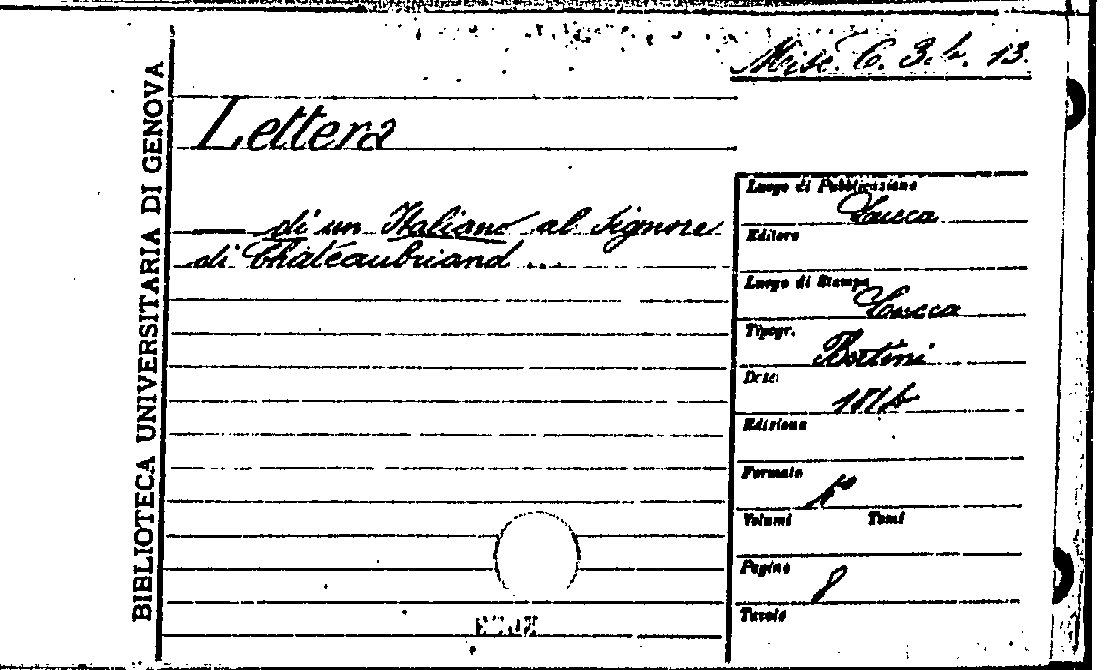 BIBLIOTECA UNIVERSITARIA DI GENOVA
Misc. C. 3.b. 13.
Lettera
— di un Italiano al Signore
di Châteaubriand ...
Luogo di Pubblicazione
Lucca
Editore
Luogo di Stampa
Lucca
Tipogr.
Bertini
Data
Edizione
Formato
Volumi Tomi
Pagine
8
Tavole